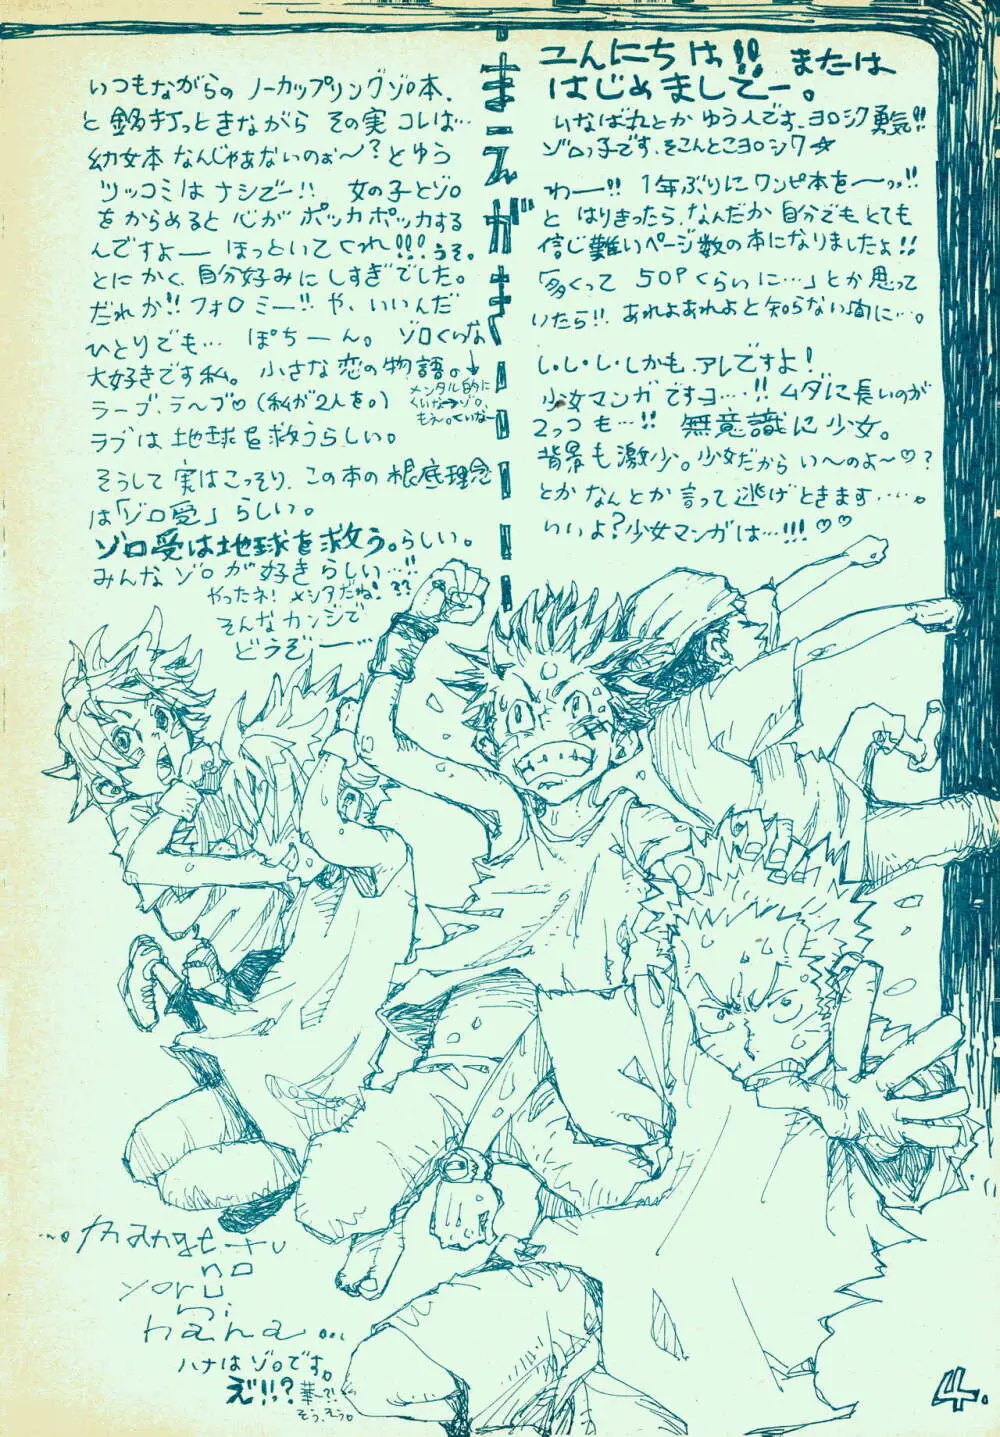 こんにちは!! または
はじめましてー。
いなば丸とかゆう人です、ヨロシク勇気!!
ゾロっ子です、そこんとこヨロシク☆
わー!! 1年ぶりにワンピ本を〜っっ!!
と はりきったら、なんだか 自分でもとても
信じ難いページ数の本になりましたよ!!
「多くって 50Pくらいに…」とか思って
いたら!! あれよあれよと知らない間に…。
し・し・し・しかも、アレですよ!
少女マンガですヨ…!! ムダに長いのが
2つも…!! 無意識に少女。
背景も激少。少女だから い〜のよ〜♡?
とかなんとか言って逃げときます……。
いいよ?少女マンガは…!!! ♡♡
まえがき
いつもながらの ノーカップリングゾロ本、
と銘打っときながら その実 コレは…
幼女本なんじゃあないのぉ〜?とゆう
ツッコミはナシでー!! 女の子とゾロ
をからめると心が ポッカポッカする
んですよー ほっといてくれ!!! うそ。
とにかく、自分好みにしすぎでした。
だれか!! フォロミー!! や、いいんだ
ひとりでも… ぽちーん。 ゾロくいな
大好きです私。 小さな恋の物語。
メンタル的に
くいな→ゾロ。
もえ。くいなー
ラーブ、ラーブ♡(私が2人を。)
ラブは 地球を救うらしい。
そうして 実はこっそり、この本の根底理念
は「ゾロ受」らしい。
ゾロ受は地球を救う。らしい。
みんな ゾロが好きらしい…!!
やったネ! メシアだね!??
そんなカンジで
どうぞー…
...mangetu
no
yoru
ni
hana...
ハナはゾロです。
え!!? 華ー?!
そう、そう。
4.